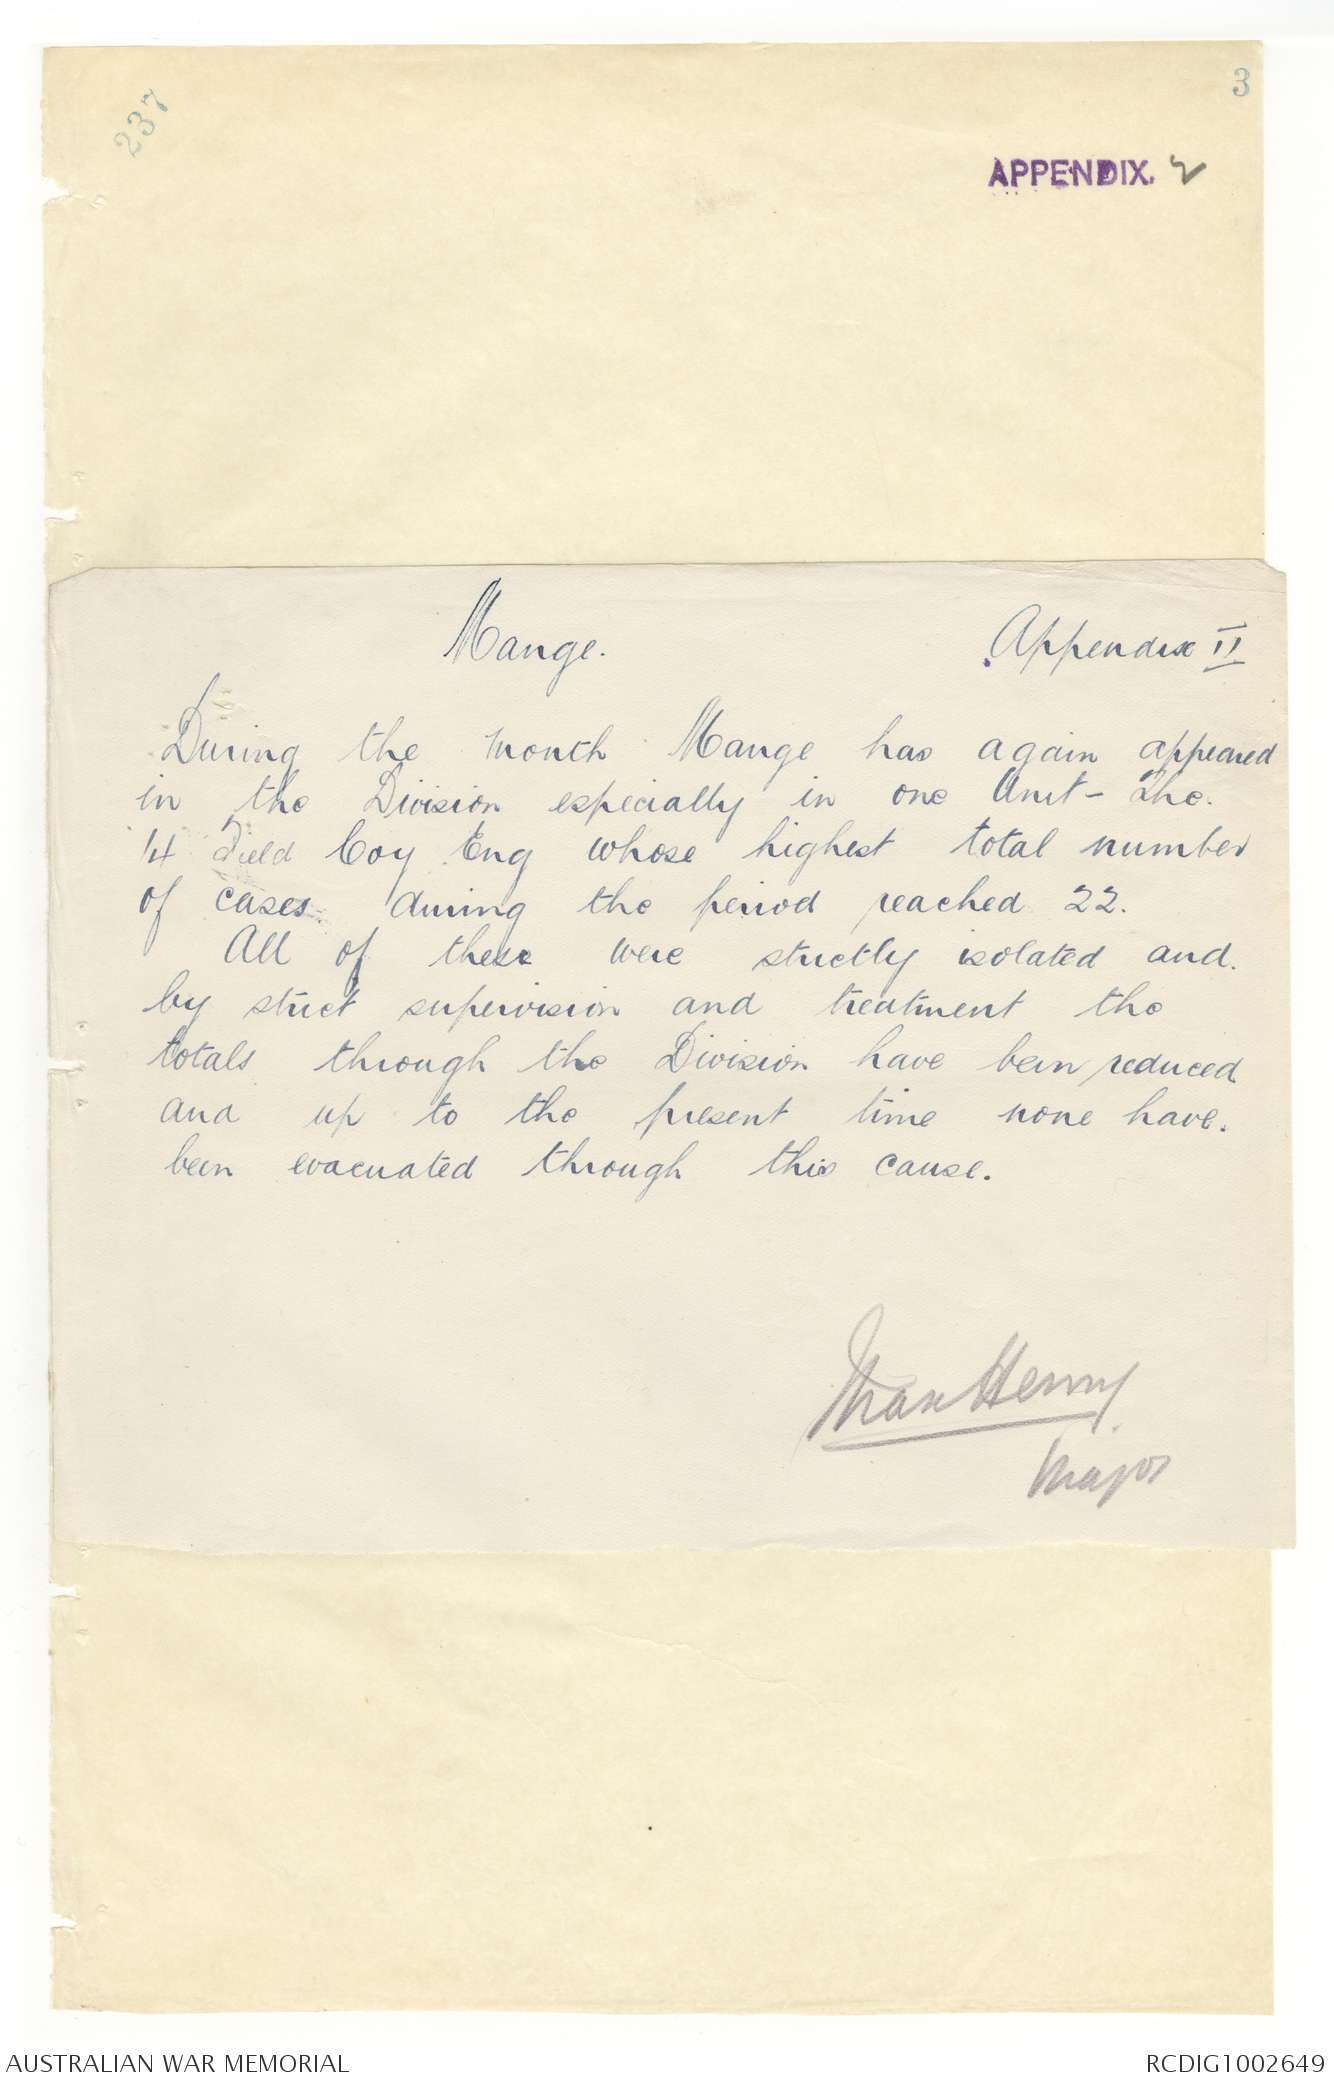 237
3
APPENDIX. 2
Mange.
Appendix II
During the month Mange has again appeared
in the Division especially in one Unit - The.
14 Field Coy Eng whose highest total number
of cases during the period reached 22.
All of these were strictly isolated and.
by strict supervision and treatment the
totals through the Division have been reduced
and up to the present time none have.
been evacuated through this cause.
Max Henry
Major
AUSTRALIAN WAR MEMORIAL
RCDIG1002649